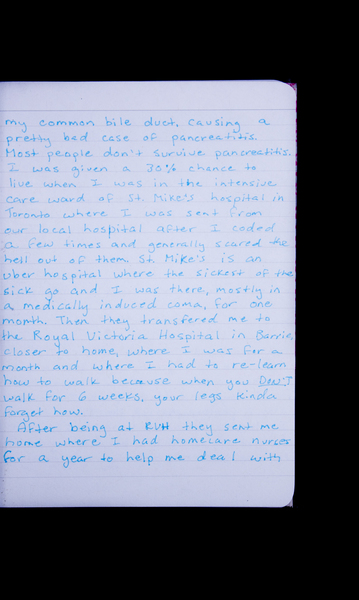 my common bile duct, causing a
pretty bad case of pancreatitis.
Most people don't survive pancreatitis.
I was given a 30% chance to
live when I was in the intensive
care ward of St. Mike's hospital in
Toronto where I was sent from
our local hospital after I coded
a few times and generally scared the
hell out of them. St. Mike's is an
uber hospital where the sickest of the
sick go and I was there, mostly in
a medically induced coma, for one
month. Then they transfered me to
the Royal Victoria Hospital in Barrie,
closer to home, where I was for a
month and where I had to re-learn
how to walk because when you DON'T
walk for 6 weeks, your legs kinda
forget how.
After being at RVH they sent me
home where I had homecare nurses
for a year to help me deal with